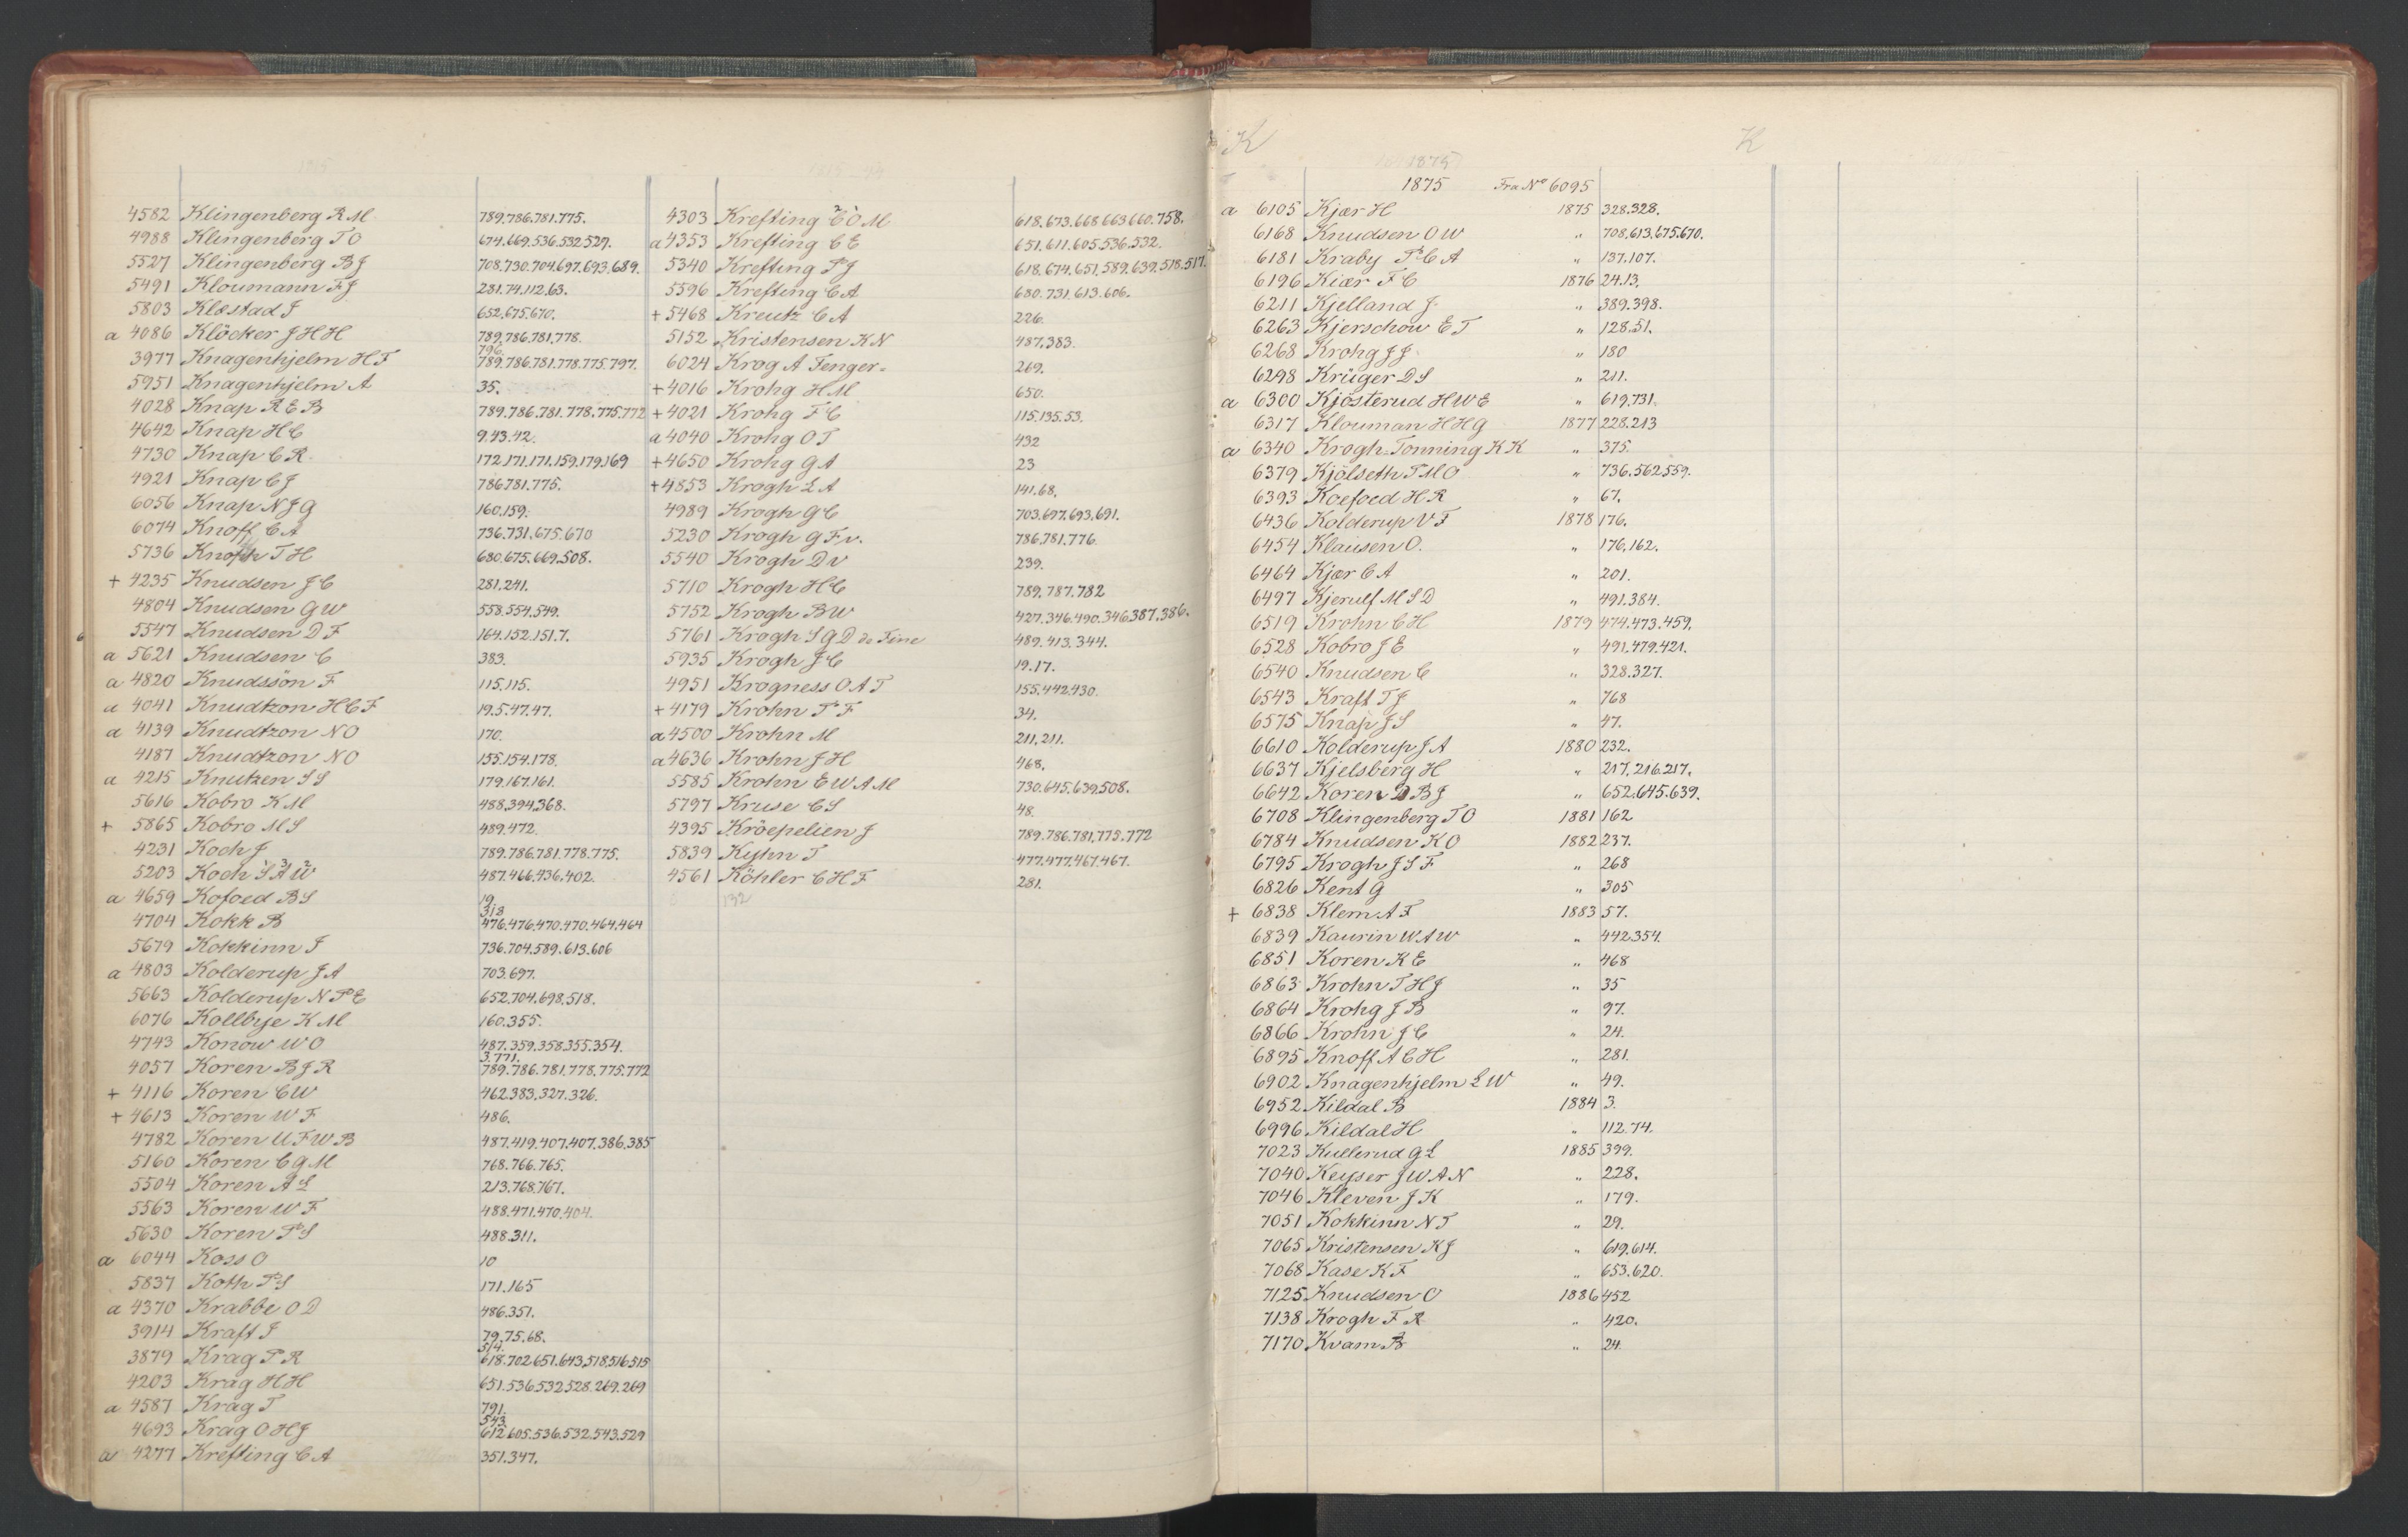 4582 Klingenberg R M 789.786.781.775.
4988 Klingenberg T O 674.669.536.532.529.
5527 Klingenberg B J 708.730.704.697.693.689.
5491 Kloumann F J 281.74.112.63.
5803 Klæstad J 652.675.670.
a 4086 Klöcker J H H 789.786.781.778.
796.
3977 Knagenhjelm H F 789.786.781.778.775.797.
5951 Knagenhjelm A 35.
4028 Knap R E B 789.786.781.778.775.772
4642 Knap H C 9.43.42.
4730 Knap C R. 172.171.171.159.179.169
4921 Knap C J 786.781.775.
6056 Knap N J G 160.159.
6074 Knoff C A 736.731.675.670
5736 Knoph T H 680.675.669.508.
+ 4235 Knudsen J C 281.241.
4804 Knudsen G W 558.554.549.
5547 Knudsen D F 164.152.151.7.
a 5621 Knudsen C 383.
a 4820 Knudssön F 115.115.
a 4041 Knudtzon H C F 19.5.47.47.
a 4139 Knudtzon N O 170.
4187 Knudtzon N O 155.154.178.
a 4215 Knutzen S S 179.167.161.
5616 Kobro K M 488.394.368.
+ 5865 Kobro M S 489.472.
4231 Koch J 789.786.781.778.775.
5203 Koch S A W 487.466.436.402.
a 4659 Kofoed B S 19.
318
4704 Kokk B 476.476.470.470.464.464
5679 Kokkinn J 736.704.589.613.606
a 4803 Kolderup J A 703.697.
5663 Kolderup N P E 652.704.698.518.
6076 Kollbye K M 160.355.
4743 Konow W O 487.359.358.355.354.
3.771.
4057 Koren B J R 789.786.781.778.775.772
+ 4116 Koren C W 462.383.327.326.
+ 4613 Koren W F 486.
4782 Koren U F W B 487.419.407.407.386.385
5160 Koren C G M 768.766.765.
5504 Koren A L 213.768.767.
5563 Koren W F 488.471.470.404.
5630 Koren P S 488.311.
a 6044 Koss O 10
5837 Koth P S 171.165
a 4370 Krabbe O D 486.351.
3914 Kraft J 79.75.68.
514.
3879 Krag P R 618.702.651.643.518.516.515
4203 Krag H H 651.536.532.528.269.269
a 4587 Krag T 791.
543.
4693 Krag O H J 612.605.536.532.543.529
a 4277 Krefting C A 351.347.
4303 Krefting C O M 618.673.668.663.660.758.
a 4353 Krefting C E 651.611.605.536.532.
5340 Krefting P J 618.674.651.589.639.518.517.
5596 Krefting C A 680.731.613.606.
+ 5468 Kreutz C A 226.
5152 Kristensen K N 487.383.
6024 Krog A Fenger- 269.
+ 4016 Krohg H M 650.
+ 4021 Krohg F C 115.135.53.
a 4040 Krohg O T 432
+ 4650 Krohg G A 23
+ 4853 Krogh L A 141.68.
4989 Krogh G C 703.697.693.691.
5230 Krogh G F v. 786.781.776.
5540 Krogh D v 239.
5710 Krogh H C 789.787.782
5752 Krogh B W 427.346.490.346.387.386.
5761 Krogh S G D de Fine 489.413.344.
5935 Krogh J C 19.17.
4951 Krogness O A T 155.442.430.
+ 4179 Krohn P F 34.
a 4500 Krohn M 211.211.
a 4636 Krohn J H 468.
5585 Krohn E W A M 730.645.639.508.
5797 Kruse C S 48.
4395 Kröepelien J 789.786.781.775.772
5839 Kyhn T 477.477.467.467.
4561 Köhler C H F 281.
132
K
K
1875
1875 Fra No 6095
a 6105 Kjær H 1875 328.328.
6168 Knudsen O W " 708.613.675.670.
6181 Kraby P C A " 137.107.
6196 Kiær F C 1876 24.13.
6211 Kjelland J. " 389.398.
6263 Kjerschow E T " 128.51.
6268 Krohg J J. " 180
6298 Krüger D S " 211.
a 6300 Kjösterud H W E " 619.731.
6317 Klouman H H G 1877 228.213
a 6340 Krogh-Tonning K K " 375.
6379 Kjölseth P M O " 736.562.559.
6393 Koefoed H R " 67.
6436 Kolderup V F 1878 176.
6454 Klausen O. " 176.162.
6464 Kjær C A " 201.
6497 Kjerulf M S D " 491.384.
6519 Krohn C H 1879 474.473.459.
6528 Kobro J E " 491.479.421.
6540 Knudsen C " 328.327.
6543 Kraft T J " 768
6575 Knap J S " 47.
6610 Kolderup J A 1880 232.
6637 Kjelsberg H " 217.216.217.
6642 Koren D B J " 652.645.639.
6708 Klingenberg T O 1881 162
6784 Knudsen K O 1882 237.
6795 Krogh J S F " 268
6826 Kent G " 305
+ 6838 Klem A F 1883 57.
6839 Kaurin W A W " 442.354.
6851 Koren K E " 468
6863 Krohn T H J " 35
6864 Krohg J B " 97.
6866 Krohn J C " 24.
6895 Knoff A C H " 281.
6902 Knagenhjelm L W " 49.
6952 Kildal B 1884 3.
6996 Kildal H " 112.74.
7023 Kullerud G L 1885 399.
7040 Keyser J W A N " 228.
7046 Kleven J K " 179.
7051 Kokkinn N T " 29.
7065 Kristensen K J " 619.614.
7068 Kase K F " 653.620.
7125 Knudsen O 1886 452
7138 Krogh F R " 420.
7170 Kvam B " 24.